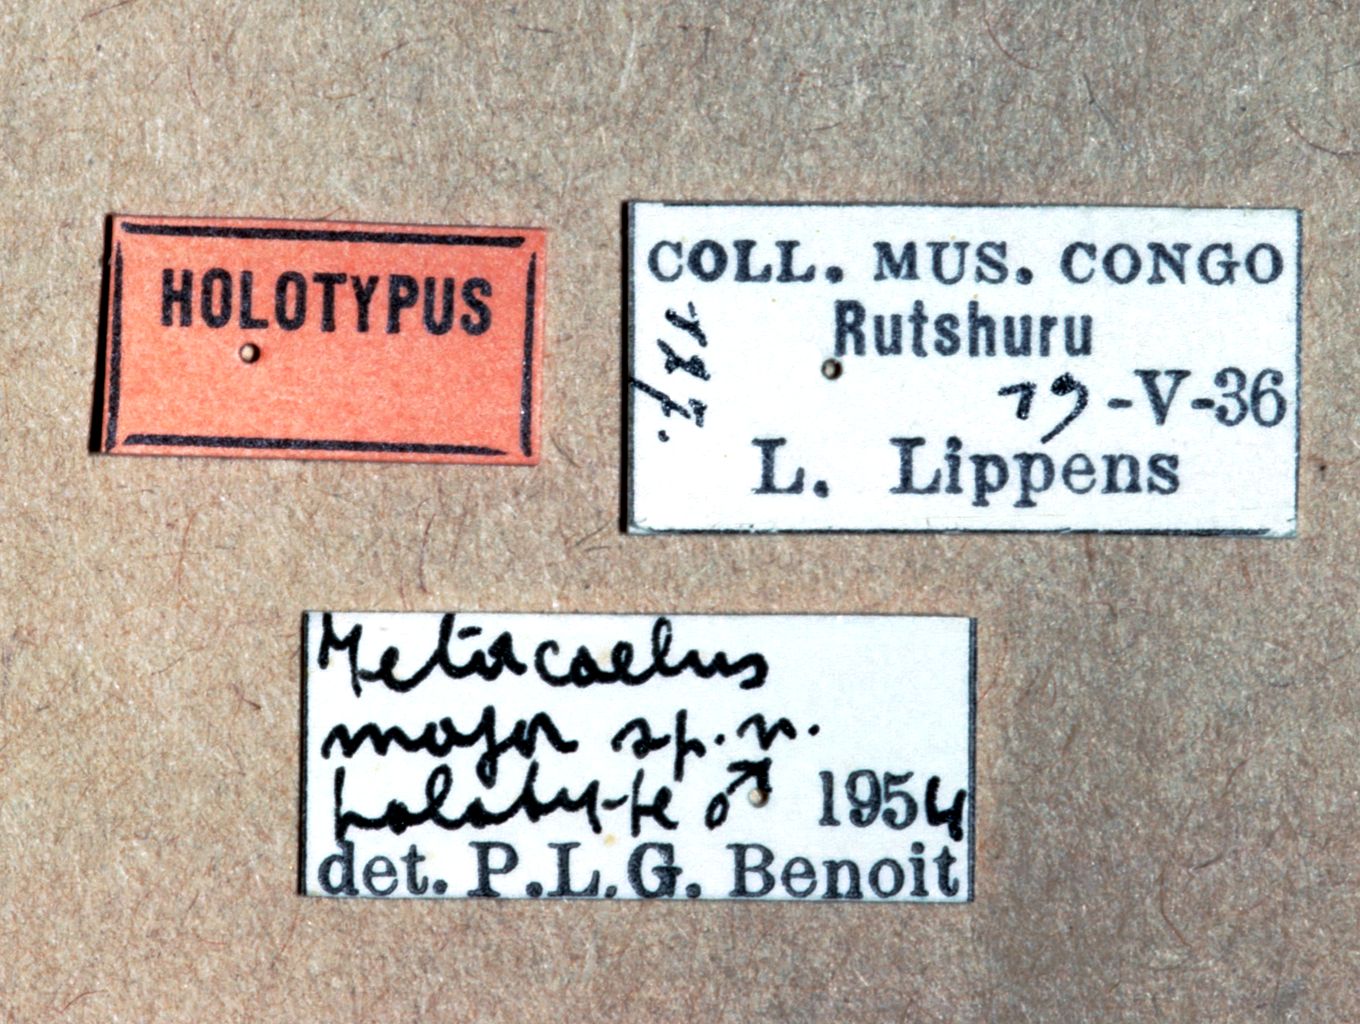 HOLOTYPUS
COLL. MUS. CONGO
Rutshuru
19-V-36
L. Lippens
Metacoelus
major sp. n.
holotype ♂ 1954
det. P.L.G. Benoit